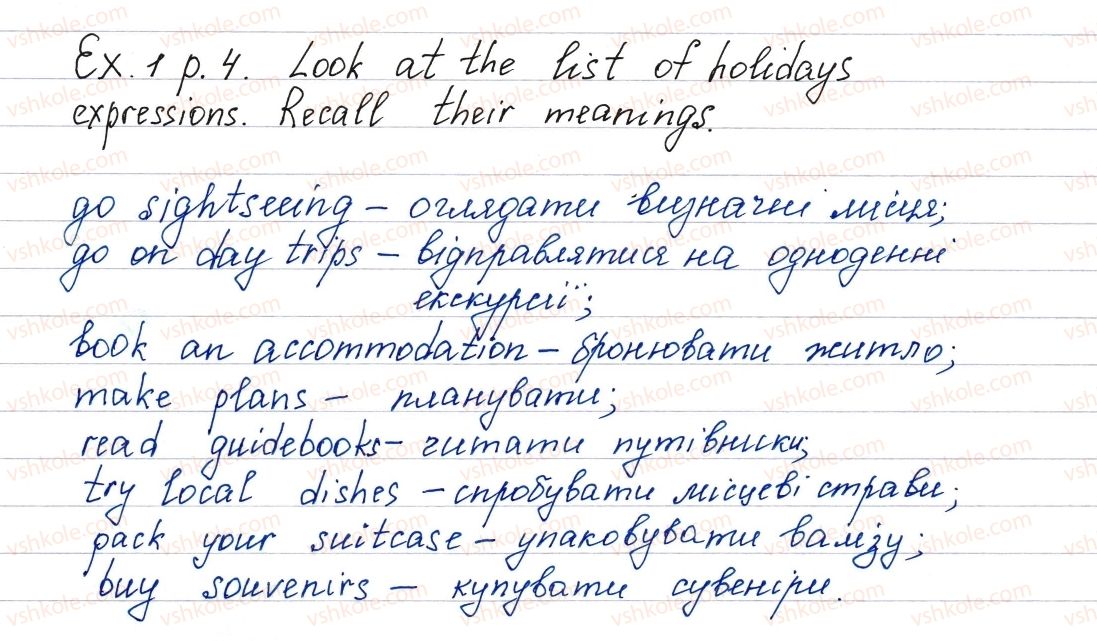 Ex. 1 p. 4. Look at the list of holidays
expressions. Recall their meanings.
go sightseeing – оглядати визначні місця;
go on day trips – відправлятися на одноденні
екскурсії;
book an accommodation – бронювати житло;
make plans – планувати;
read guidebooks – читати путівники;
try local dishes – спробувати місцеві страви;
pack your suitcase – упаковувати валізу;
buy souvenirs – купувати сувеніри.